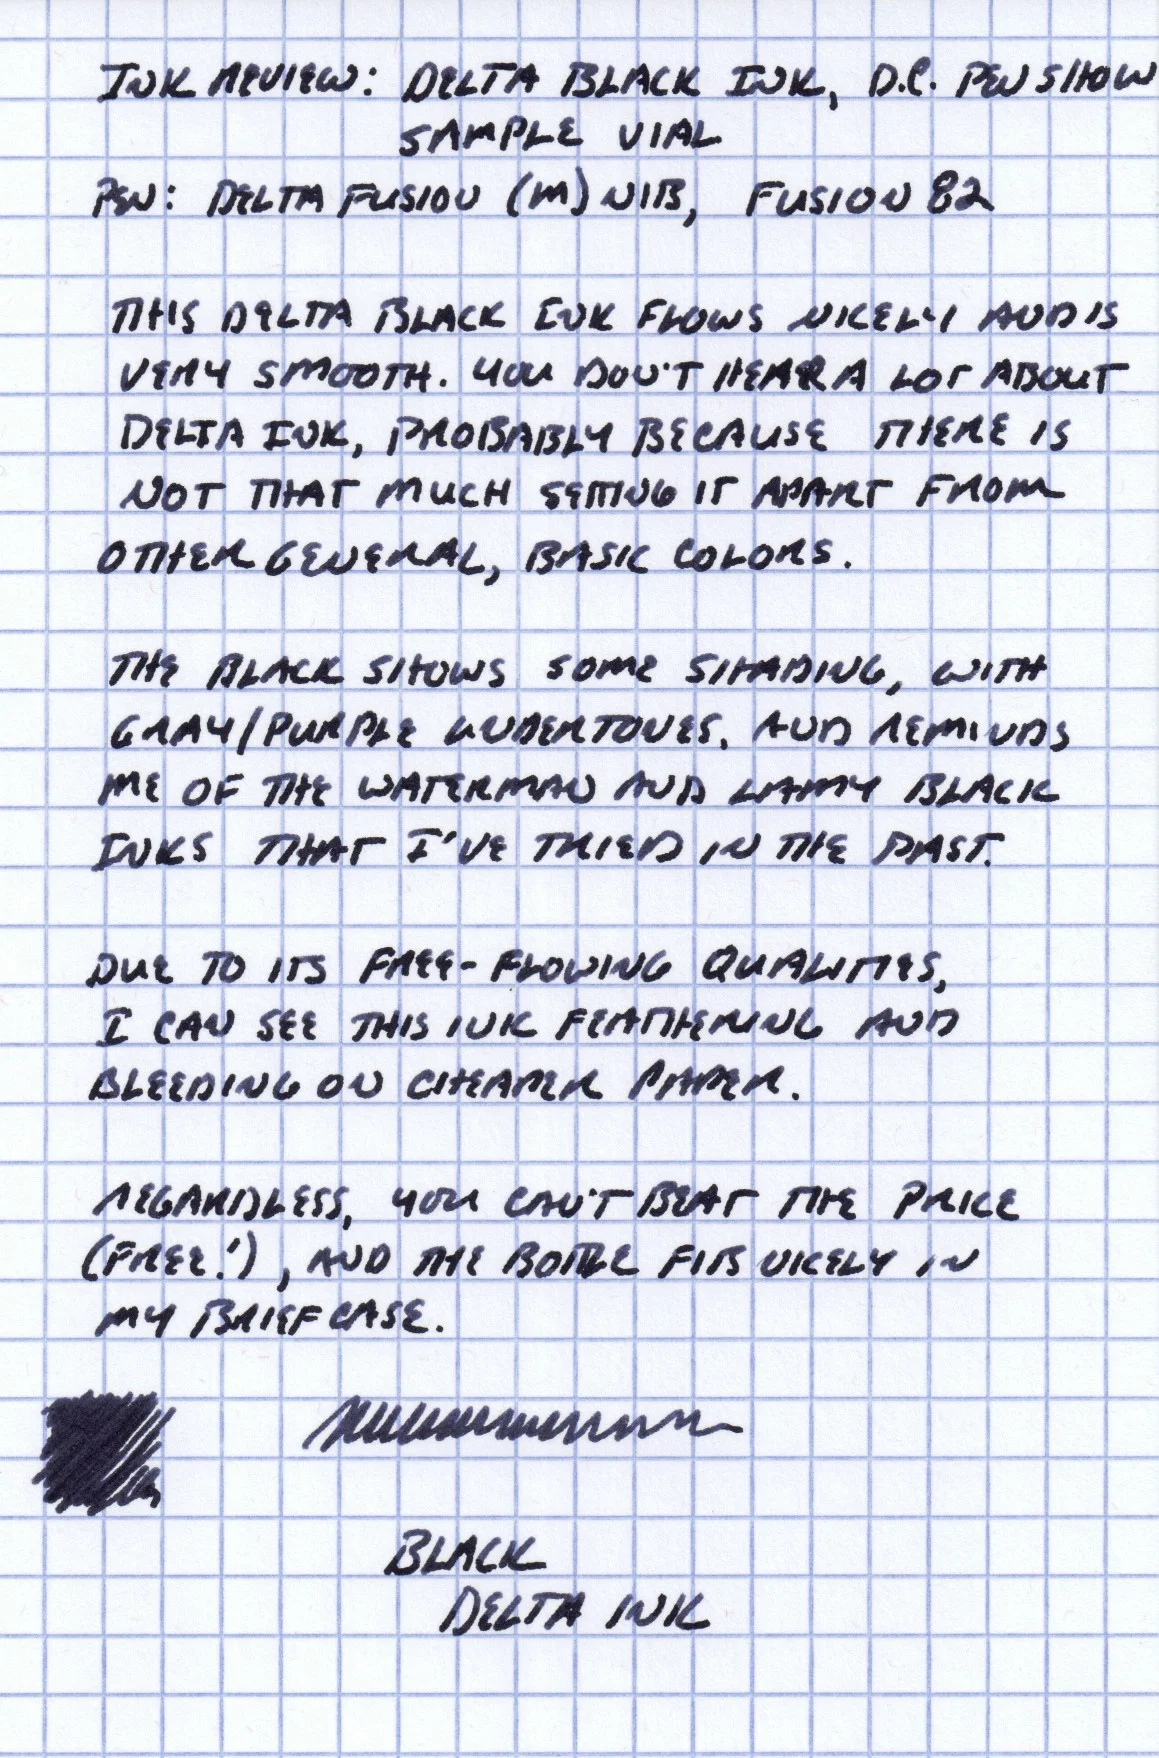 INK REVIEW: DELTA BLACK INK, D.C. PEN SHOW
SAMPLE VIAL
PEN: DELTA FUSION (M) NIB, FUSION 82
THIS DELTA BLACK INK FLOWS NICELY AND IS
VERY SMOOTH. YOU DON'T HEAR A LOT ABOUT
DELTA INK, PROBABLY BECAUSE THERE IS
NOT THAT MUCH SETTING IT APART FROM
OTHER GENERAL, BASIC COLORS.
THE BLACK SHOWS SOME SHADING, WITH
GRAY/PURPLE UNDERTONES. AND REMINDS
ME OF THE WATERMAN AND LAMY BLACK
INKS THAT I'VE TRIED IN THE PAST.
DUE TO ITS FREE-FLOWING QUALITIES,
I CAN SEE THIS INK FEATHERING AND
BLEEDING ON CHEAPER PAPER.
REGARDLESS, YOU CAN'T BEAT THE PRICE
(FREE!), AND THE BOTTLE FITS NICELY IN
MY BRIEFCASE.
BLACK
DELTA INK